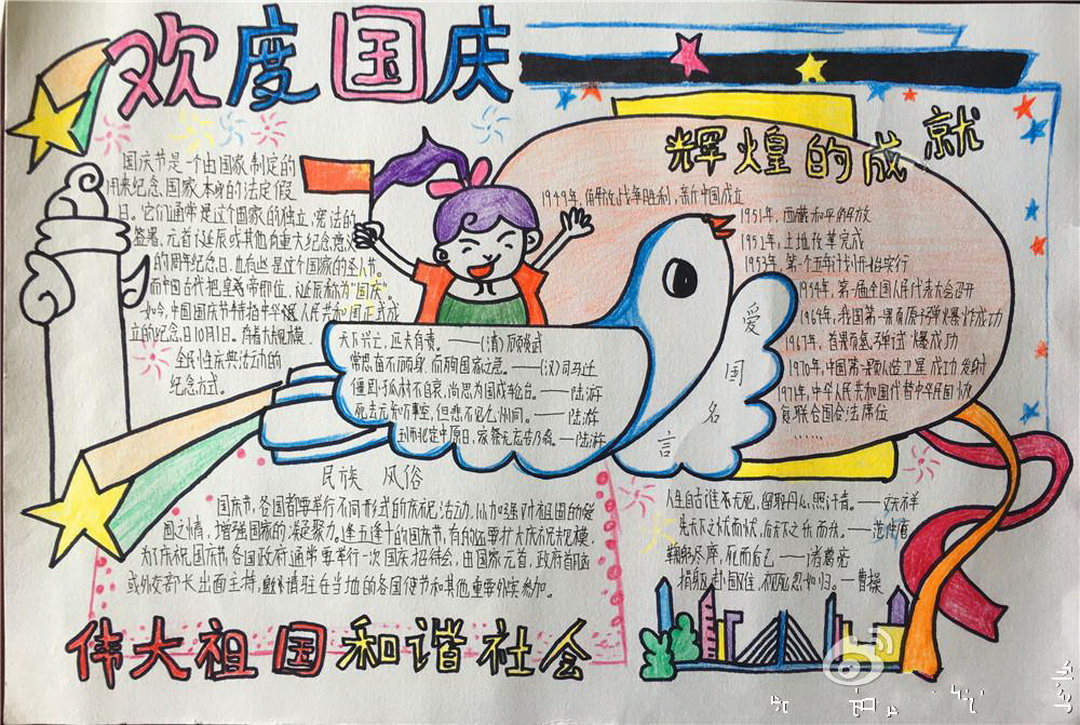 欢度国庆
国庆节是一个由国家制定的
用来纪念国家本身的法定假
日。它们通常是这个国家的独立、宪法的
签署、元首诞辰或其他有重大纪念意义
的周年纪念日,也有些是这个国家的圣人节。
而中国古代把皇帝即位、诞辰称为"国庆"。
如今,中国国庆节特指中华人民共和国正式成
立的纪念日10月1日。有着大规模、
全民性庆典活动的
纪念方式。
辉煌的成就
1949年,解放战争胜利,新中国成立
1951年,西藏和平解放
1952年,土地改革完成
1953年 第一个五年计划开始实行
1954年,第一届全国人民代表大会召开
1964年,我国第一颗原子弹爆炸成功
1967年,首颗氢弹试爆成功
1970年,中国第一颗人造卫星成功发射
1971年,中华人民共和国代替中华民国
复联合国合法席位
……
天下兴亡,匹夫有责。——(清)顾炎武
常思奋不顾身,而殉国家之急。——(汉)司马迁
僵卧孤村不自哀,尚思为国戍轮台。——陆游
死去元知万事空,但悲不见九州同。——陆游
王师北定中原日,家祭无忘告乃翁。—陆游
爱国名言
民族 风俗
国庆节,各国都要举行不同形式的庆祝活动,以加强对祖国的爱
国之情,增强国家的凝聚力。逢五逢十的国庆节,有的还要扩大庆祝规模,
为庆祝国庆节,各国政府通常要举行一次国庆招待会,由国家元首、政府首脑
或外交部长出面主持,邀请驻在当地的各国使节和其他重要外宾参加。
人生自古谁无死,留取丹心照汗青。——文天祥
先天下之忧而忧,后天下之乐而乐。——范仲淹
鞠躬尽瘁,死而后已 ——诸葛亮
捐躯赴国难,视死忽如归。—曹操
伟大祖国和谐社会